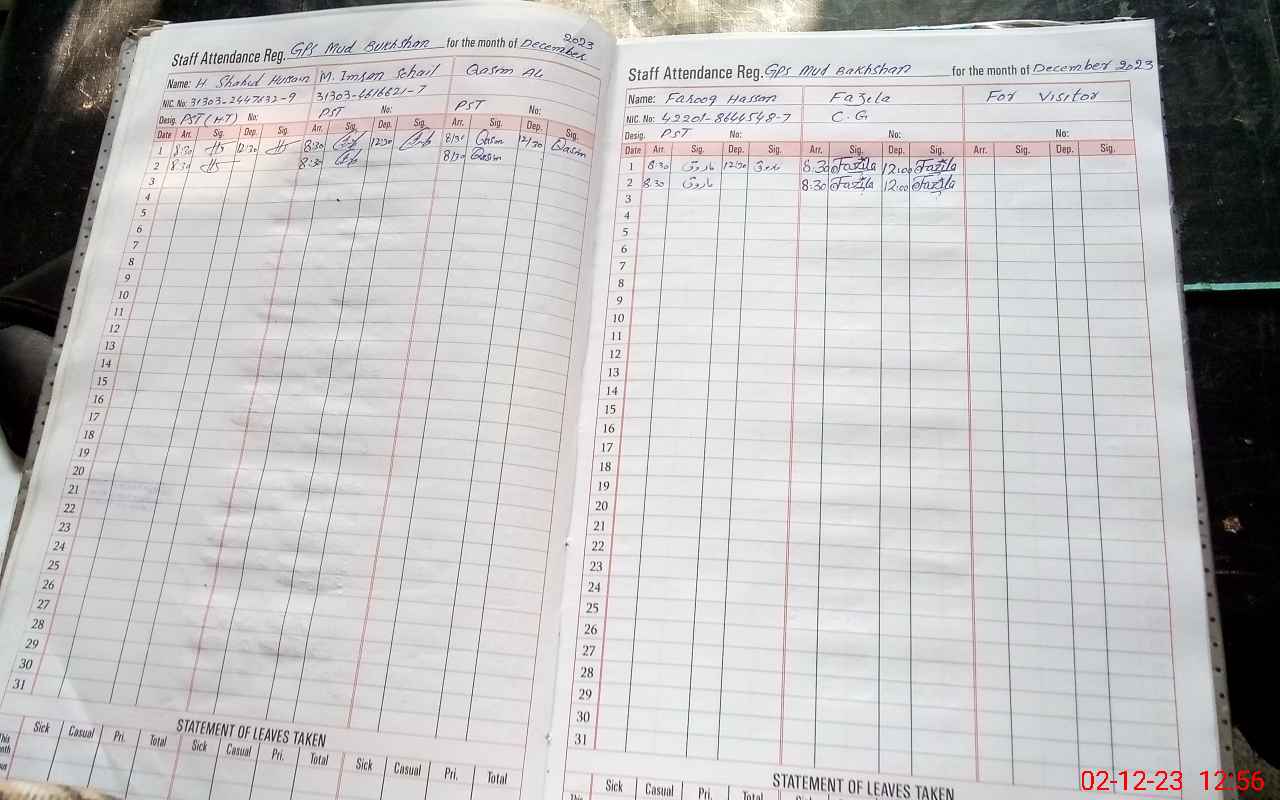 Staff Attendance Reg. GPS Mud Bukhshan for the month of December 2023
Name: H Shahid Hussain M. Imran Sohail Qasim Ali
NIC. No: 31303-2447632-9 31303-4616621-7
Desig. PST (HT) No: PST No: PST No:
Date Arr. Sig. Dep. Sig. Arr. Sig. Dep. Sig. Arr. Sig. Dep. Sig.
1 8:30 12:30 8:30 12:30 8/30 Qasim 12/30 Qasim
2 8:30 8:30 8/30 Qasim
3
4
5
6
7
8
9
10
11
12
13
14
15
16
17
18
19
20
21
22
23
24
25
26
27
28
29
30
31
STATEMENT OF LEAVES TAKEN
This Sick Casual Pri. Total Sick Casual Pri. Total Sick Casual Pri. Total
Staff Attendance Reg. GPS Mud Bakhshan for the month of December 2023
Name: Farooq Hassan Fazela For Visitor
NIC. No: 42201-8646548-7 C.G
Desig. PST No: No: No:
Date Arr. Sig. Dep. Sig. Arr. Sig. Dep. Sig. Arr. Sig. Dep. Sig.
1 8:30 فاروق 12:30 فاروق 8:30 Fazila 12:00 Fazila
2 8:30 فاروق 8:30 Fazila 12:00 Fazila
3
4
5
6
7
8
9
10
11
12
13
14
15
16
17
18
19
20
21
22
23
24
25
26
27
28
29
30
31
STATEMENT OF LEAVES TAKEN
This Sick Casual Pri. Total Sick Casual Pri. Total Sick Casual Pri.
02-12-23 12:56